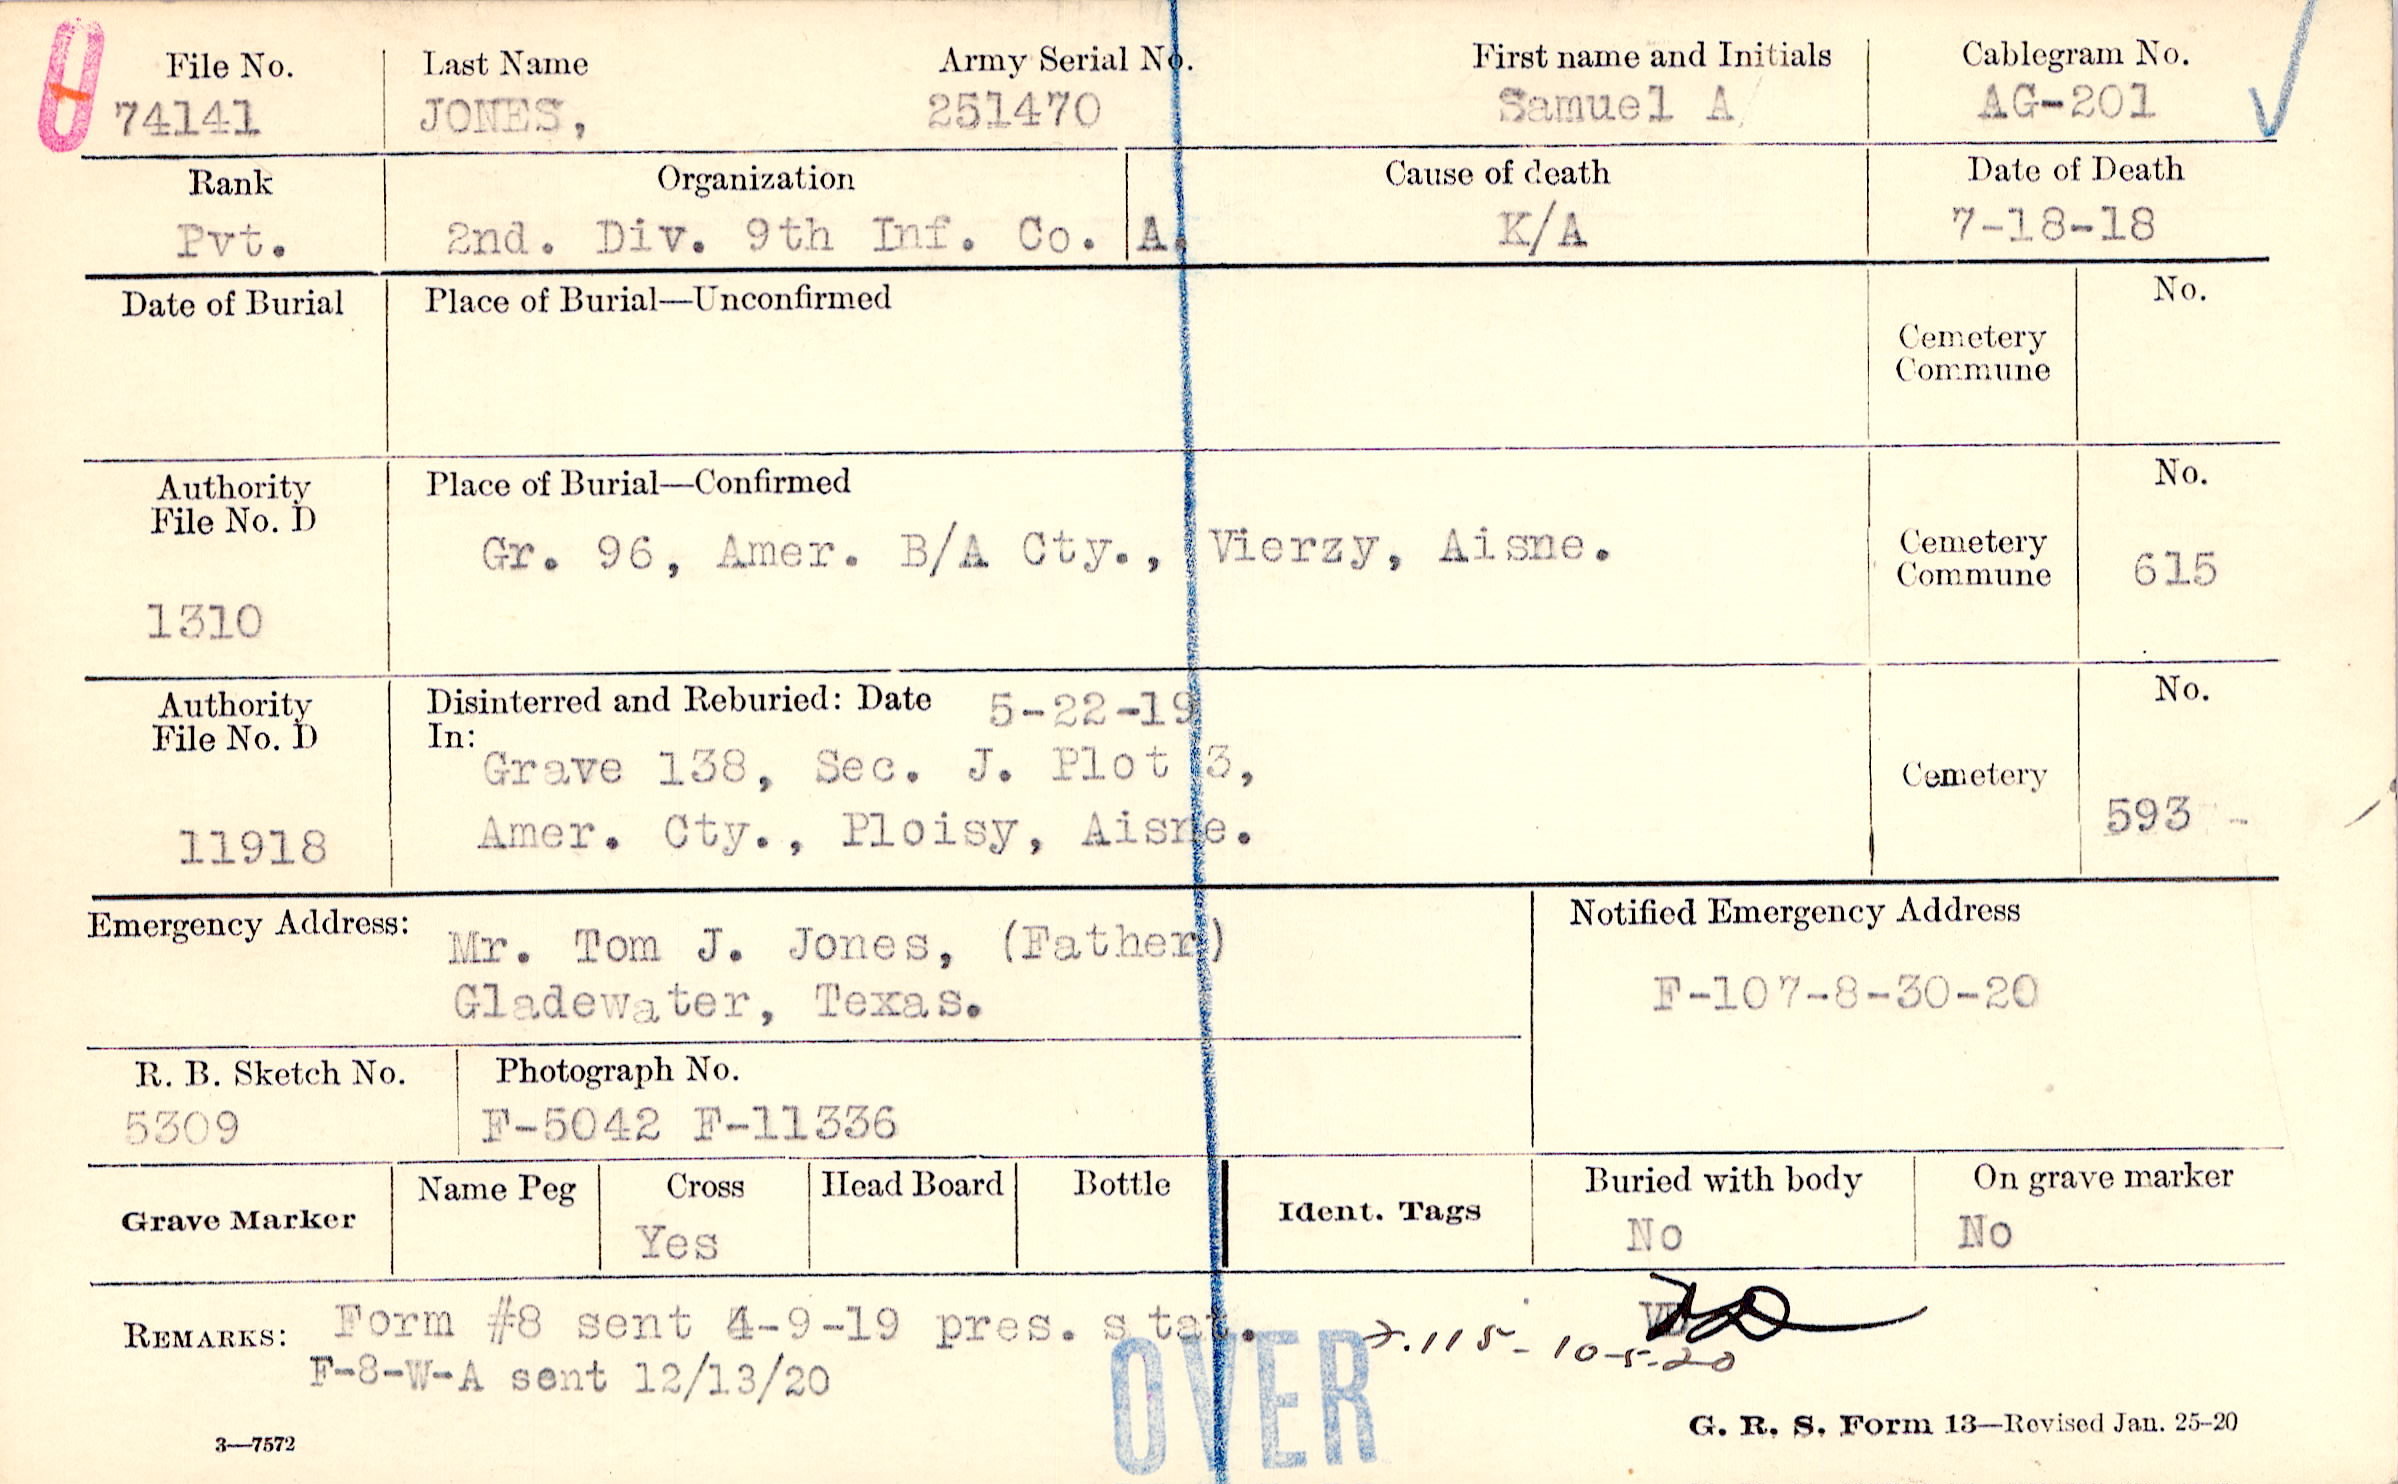 File No. Last Name Army Serial No. First name and Initials Cablegram No.
74141 JONES, 251470 Samuel A AG-201
Rank Organization Cause of death Date of Death
Pvt. 2nd. Div. 9th Inf. Co. A. K/A 7-18-18
Date of Burial Place of Burial—Unconfirmed No.
Cemetery
Commune
Authority Place of Burial—Confirmed No.
File No. D
Gr. 96, Amer. B/A Cty., Vierzy, Aisne. Cemetery
Commune 615
1310
Authority Disinterred and Reburied: Date 5-22-19 No.
File No. D In:
Grave 138, Sec. J. Plot 3, Cemetery
Amer. Cty., Ploisy, Aisne. 593
11918
Emergency Address: Notified Emergency Address
Mr. Tom J. Jones, (Father)
Gladewater, Texas. F-107-8-30-20
R. B. Sketch No. Photograph No.
5309 F-5042 F-11336
Grave Marker Name Peg Cross Head Board Bottle Ident. Tags Buried with body On grave marker
Yes No No
REMARKS: Form #8 sent 4-9-19 pres. s tat.
.115-10-5-20
F-8-W-A sent 12/13/20
OVER
G. R. S. Form 13—Revised Jan. 25-20
3—7572